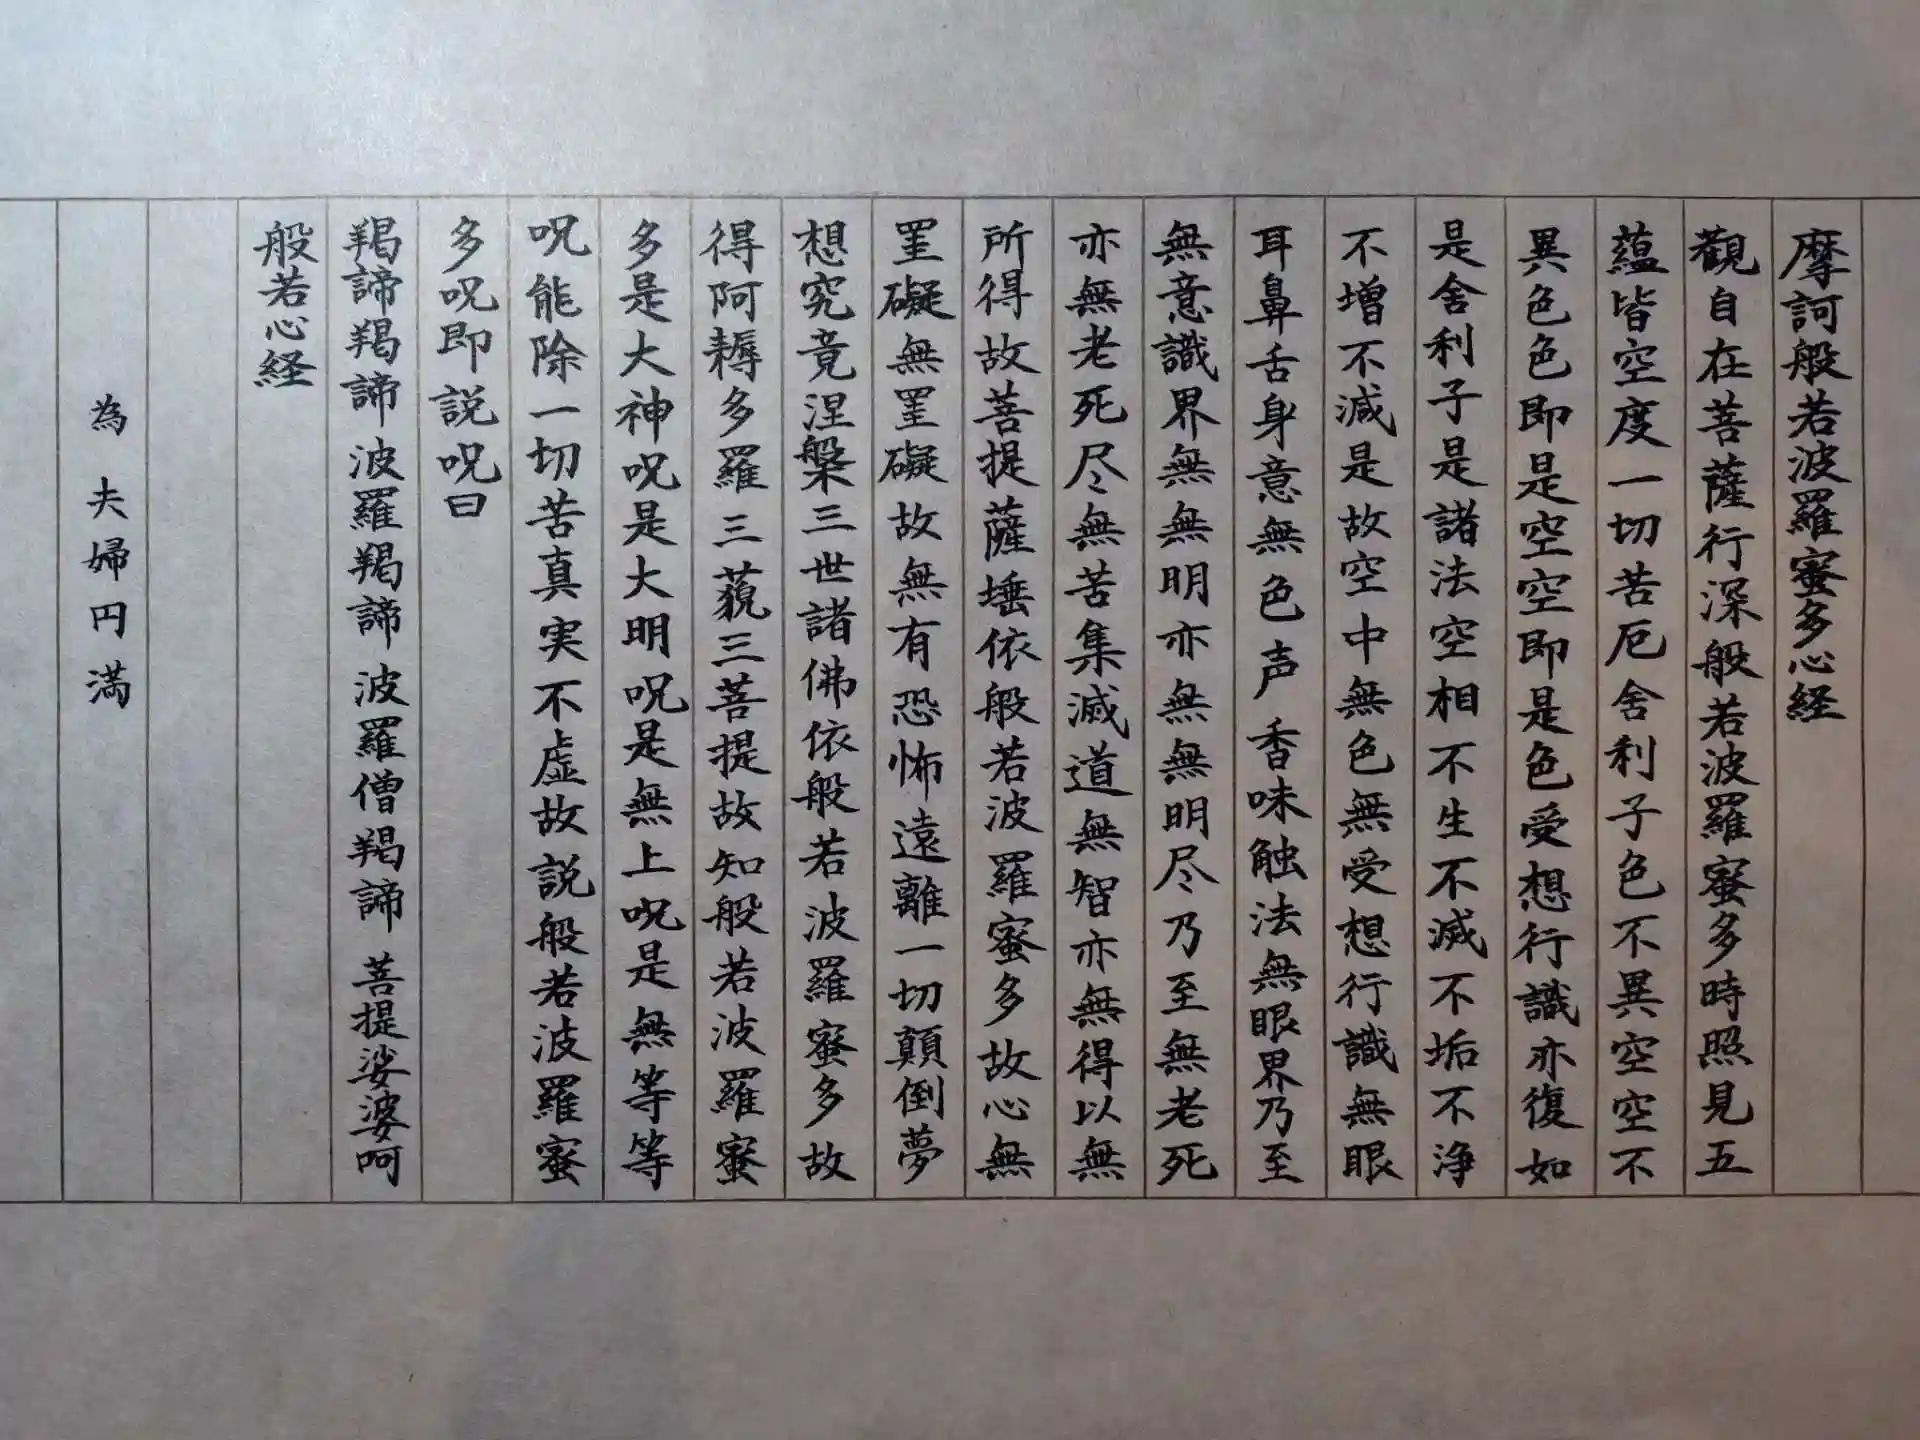 摩訶般若波羅蜜多心経
観自在菩薩行深般若波羅蜜多時照見五
蘊皆空度一切苦厄舎利子色不異空空不
異色色即是空空即是色受想行識亦復如
是舎利子是諸法空相不生不滅不垢不浄
不増不減是故空中無色無受想行識無眼
耳鼻舌身意無色声香味触法無眼界乃至
無意識界無無明亦無無明尽乃至無老死
亦無老死尽無苦集滅道無智亦無得以無
所得故菩提薩埵依般若波羅蜜多故心無
罣礙無罣礙故無有恐怖遠離一切顛倒夢
想究竟涅槃三世諸佛依般若波羅蜜多故
得阿耨多羅三藐三菩提故知般若波羅蜜
多是大神呪是大明呪是無上呪是無等等
呪能除一切苦真実不虚故説般若波羅蜜
多呪即説呪曰
羯諦羯諦波羅羯諦波羅僧羯諦菩提娑婆呵
般若心経
為夫婦円満